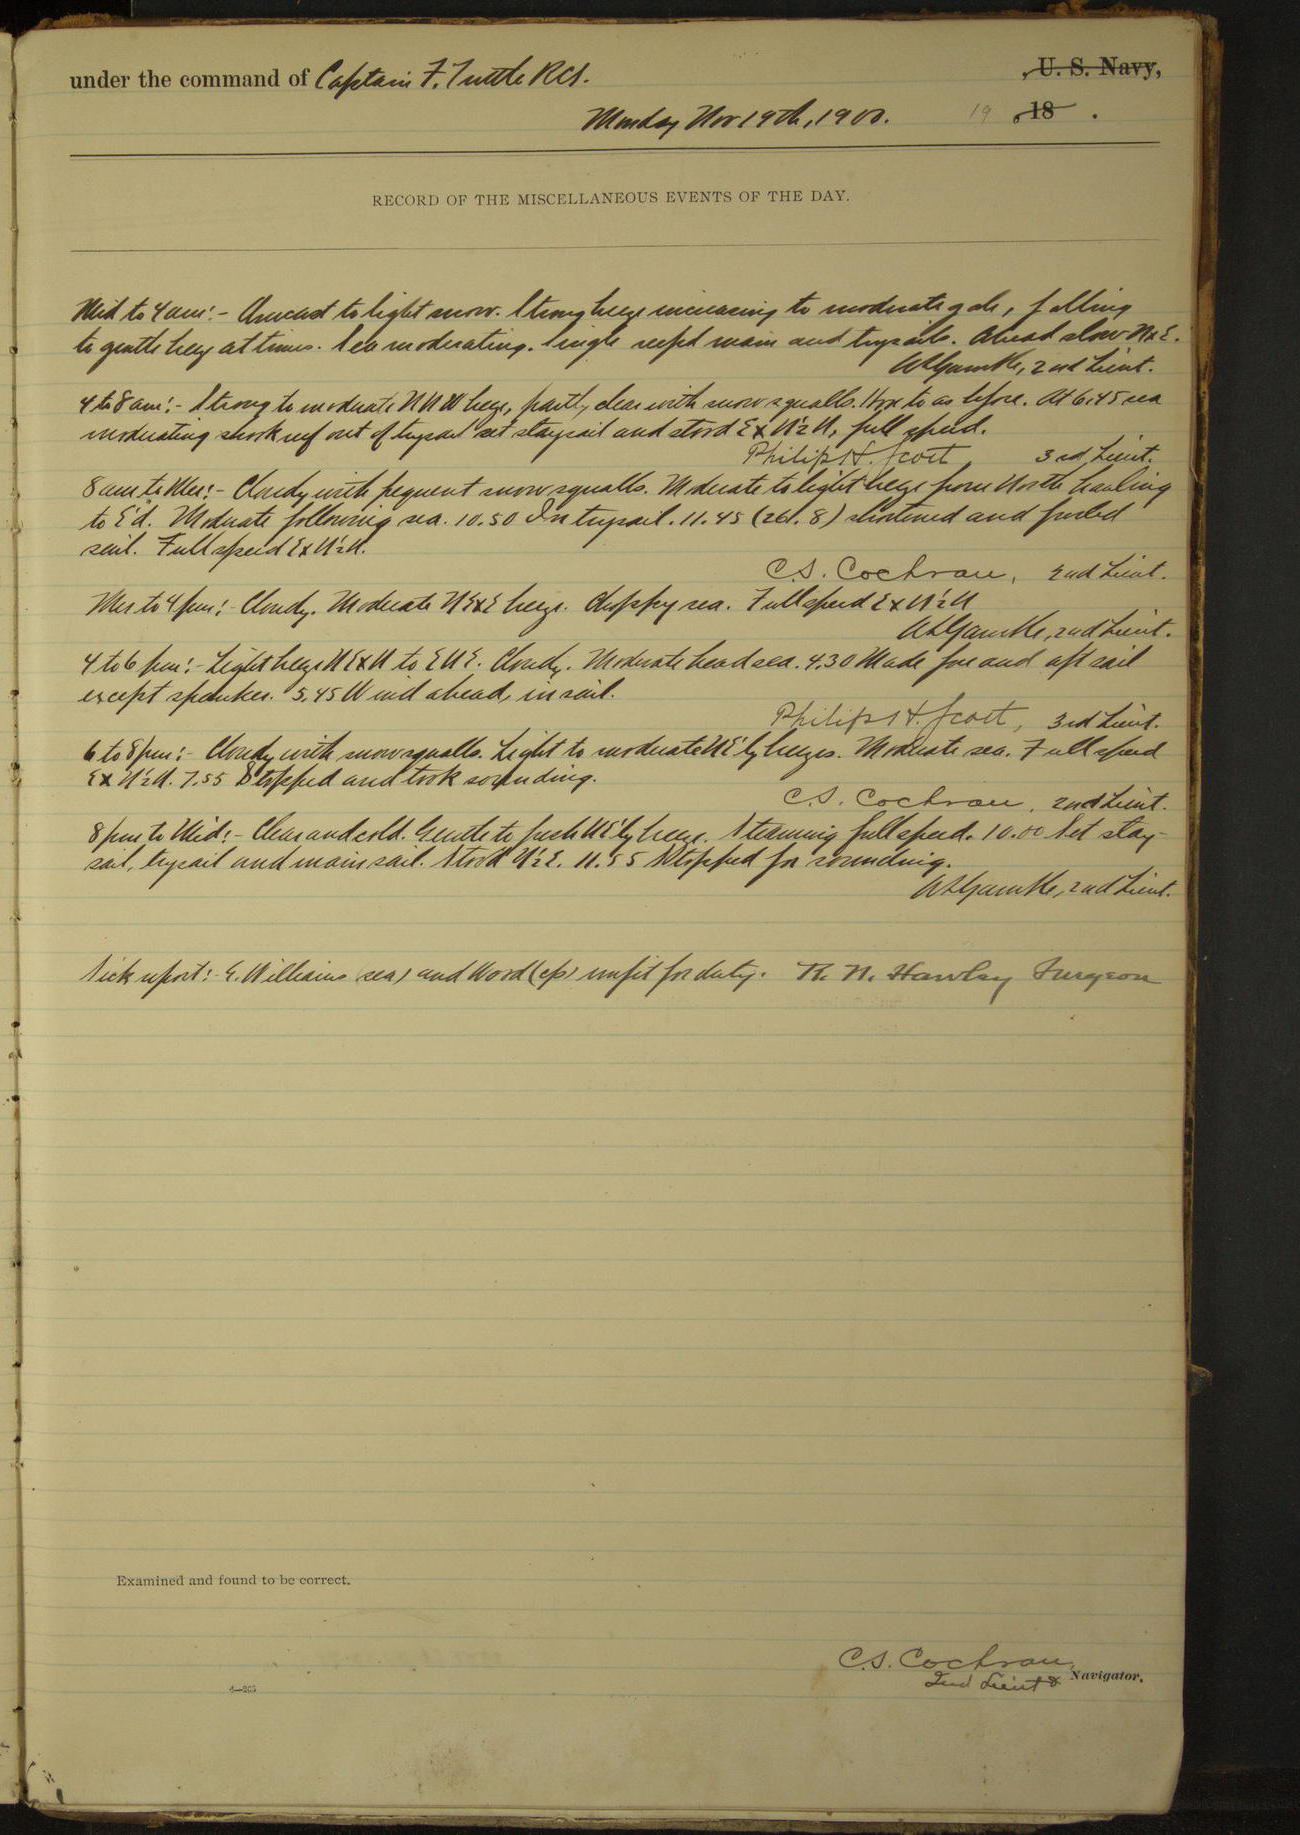 under the command of Captain F. Tuttle RCS. , U. S. Navy,
Monday Nov 19th, 1900. 19 , 18 .
RECORD OF THE MISCELLANEOUS EVENTS OF THE DAY.
Mid to 4 am:- Overcast to light snow. Strong breeze increasing to moderate gale, falling
to gentle breeze at times. Sea moderating. Single reefed main and trysails. Ahead slow NxE.
2nd Lieut.
4 to 8 am:- Strong to moderate NNW breeze, partly clear with snow squalls. Hove to as before. At 6.45 sea
moderating shook reef out of trysail set staysail and stood ExN½N, full speed.
Philip H. Scott, 3rd Lieut.
8 am to Mer:- Cloudy with frequent snow squalls. Moderate to light breeze from North hauling
to E'd. Moderate following sea. 10.50 In trysail. 11.45 (26.8) shortened and furled
sail. Full speed ExN½N.
C.S. Cochran, 2nd Lieut.
Mer to 4 pm:- Cloudy. Moderate NExE breeze. Choppy sea. Full speed ExN½N
2nd Lieut.
4 to 6 pm:- Light breeze NExN to ENE. Cloudy. Moderate head sea. 4.30 Made fore and aft sail
except spanker. 5.45 Wind ahead, in sail.
Philip H. Scott, 3rd Lieut.
6 to 8 pm:- Cloudy with snow squalls. Light to moderate NE'ly breezes. Moderate sea. Full speed
ExN½N. 7.55 Stopped and took sounding.
C.S. Cochran, 2nd Lieut.
8 pm to Mid:- Clear and cold. Gentle to fresh NE'ly breeze. Steaming full speed. 10.00 Set stay-
sail, trysail and mainsail. Stood N½E. 11.55 Stopped for sounding.
2nd Lieut.
Sick report:- E. Williams (sea) and Word (cp) unfit for duty. R. N. Hawley Surgeon
Examined and found to be correct.
C.S. Cochran,
2nd Lieut & Navigator.
6—203